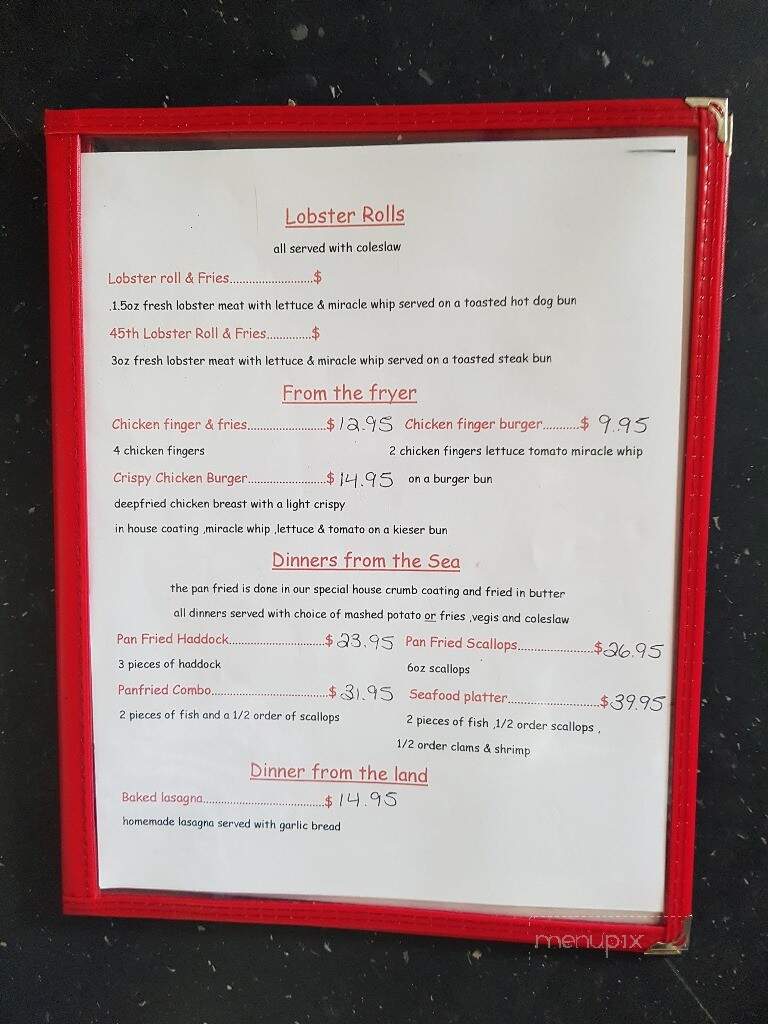 Lobster Rolls
all served with coleslaw
Lobster roll & Fries..........................$
.1.5oz fresh lobster meat with lettuce & miracle whip served on a toasted hot dog bun
45th Lobster Roll & Fries..............$
3oz fresh lobster meat with lettuce & miracle whip served on a toasted steak bun
From the fryer
Chicken finger & fries.........................$ 12.95 Chicken finger burger...........$ 9.95
4 chicken fingers 2 chicken fingers lettuce tomato miracle whip
Crispy Chicken Burger.........................$ 14.95 on a burger bun
deepfried chicken breast with a light crispy
in house coating ,miracle whip ,lettuce & tomato on a kieser bun
Dinners from the Sea
the pan fried is done in our special house crumb coating and fried in butter
all dinners served with choice of mashed potato or fries ,vegis and coleslaw
Pan Fried Haddock..............................$ 23.95 Pan Fried Scallops........................$26.95
3 pieces of haddock 6oz scallops
Panfried Combo....................................$ 31.95 Seafood platter............................$39.95
2 pieces of fish and a 1/2 order of scallops 2 pieces of fish ,1/2 order scallops ,
1/2 order clams & shrimp
Dinner from the land
Baked lasagna......................................$ 14.95
homemade lasagna served with garlic bread
menupix